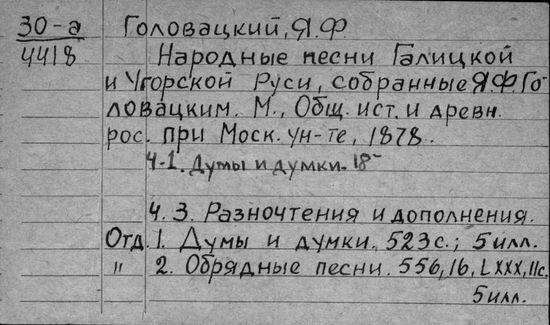 30-а
4418
Головацкий, Я.Ф.
Народные песни Галицкой
и Угорской Руси, собранные Я.Ф.Го
ловацким. М., Общ. ист. и древн.
рос. при Моск. ун-те, 1878.
Ч-1. Думы и думки. 18-
Ч. 3. Разночтения и дополнения.
Отд. 1. Думы и думки. 523с.; 5илл.
" 2. Обрядные песни. 556, 16, LXXX, IIс.
5илл.